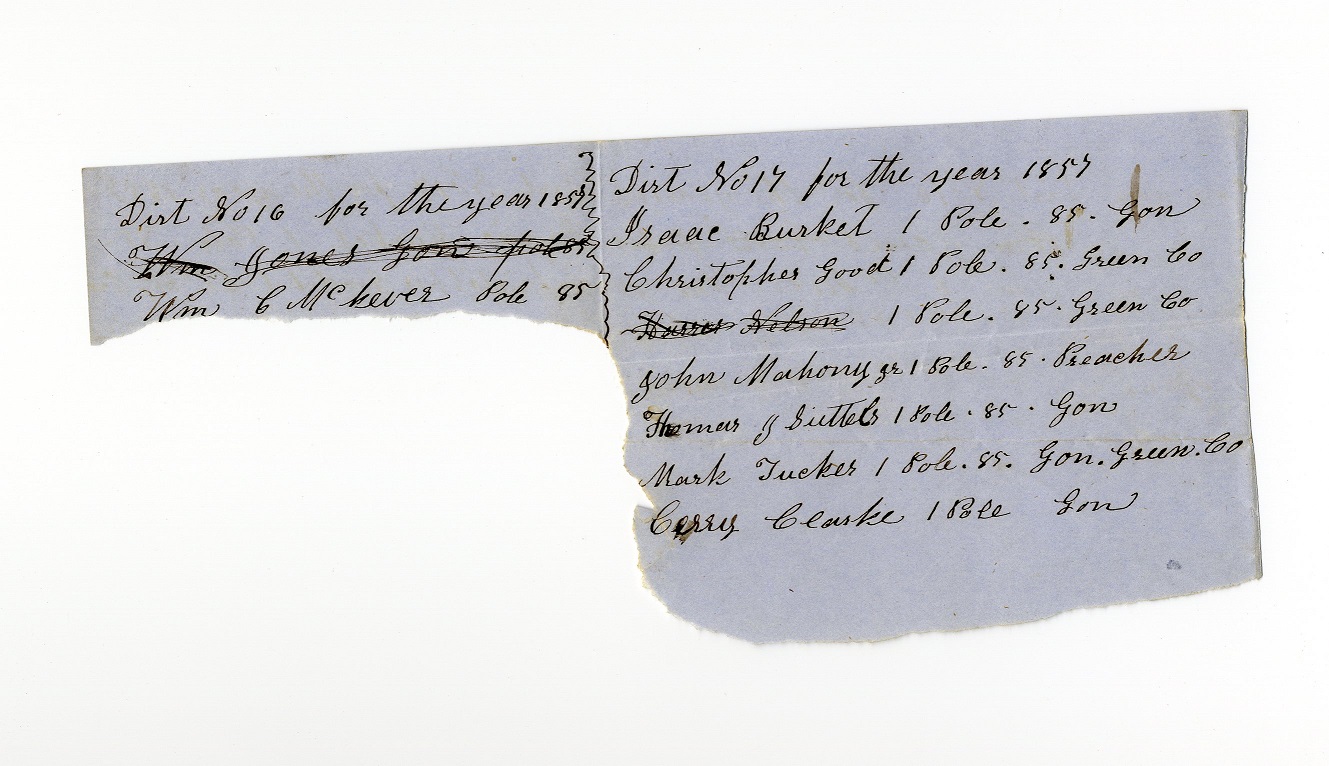 Dist No 16 for the year 1857
Wm Jones Gon pole 85
Wm C McKever Pole 85
Dist No 17 for the year 1857
Isaac Burket 1 Pole. 85. Gon
Christopher Good 1 Pole. 85. Green Co
Harres Nelson 1 Pole. 85. Green Co
John Mahony jr 1 Pole. 85. Preacher
Thomas J Suttels 1 Pole. 85. Gon
Mark Tucker 1 Pole. 85. Gon. Green. Co
Clarke 1 Pole Gon